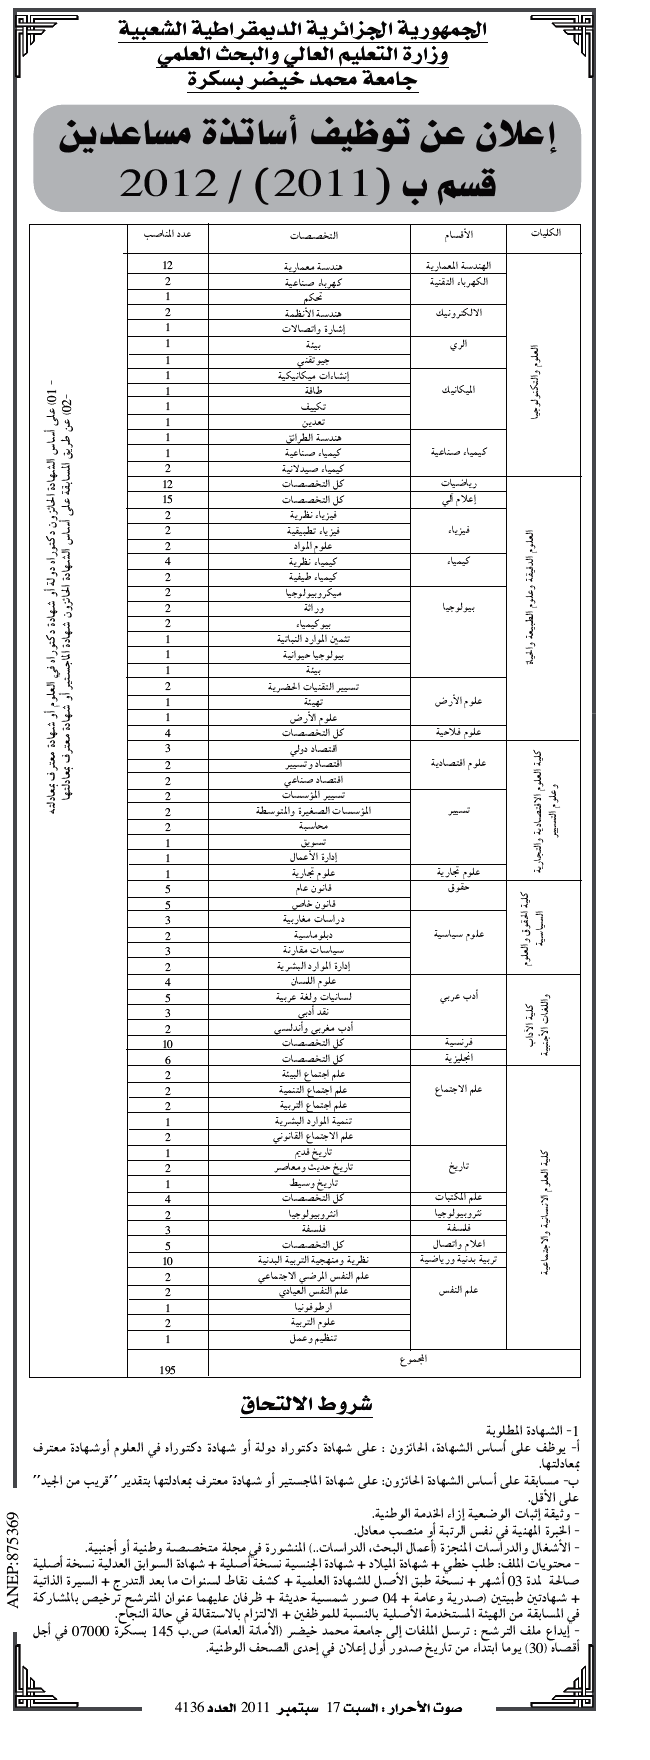 الجمهورية الجزائرية الديمقراطية الشعبية
وزارة التعليم العالي والبحث العلمي
جامعة محمد خيضر بسكرة
إعلان عن توظيف أساتذة مساعدين
قسم ب (2011) / 2012
الكليات الأقسام التخصصات عدد المناصب
العلوم والتكنولوجيا
الهندسة المعمارية هندسة معمارية 12
الكهرباء التقنية كهرباء صناعية 2
تحكم 1
الالكترونيك هندسة الأنظمة 2
إشارة واتصالات 1
الري بيئة 1
جيوتقني 1
الميكانيك إنشاءات ميكانيكية 1
طاقة 1
تكييف 1
تعدين 1
كيمياء صناعية هندسة الطرائق 1
كيمياء صناعية 1
كيمياء صيدلانية 2
العلوم الدقيقة وعلوم الطبيعة والحياة
رياضيات كل التخصصات 12
إعلام آلي كل التخصصات 15
فيزياء فيزياء نظرية 2
فيزياء تطبيقية 2
علوم المواد 2
كيمياء كيمياء نظرية 4
كيمياء طيفية 2
بيولوجيا ميكروبيولوجيا 2
وراثة 2
بيوكيمياء 2
تثمين الموارد النباتية 1
بيولوجيا حيوانية 1
بيئة 1
علوم الأرض تسيير التقنيات الحضرية 2
تهيئة 1
علوم الأرض 1
علوم فلاحية كل التخصصات 4
كلية العلوم الاقتصادية والتجارية
وعلوم التسيير
علوم اقتصادية اقتصاد دولي 3
اقتصاد وتسيير 2
اقتصاد صناعي 2
تسيير تسيير المؤسسات 2
المؤسسات الصغيرة والمتوسطة 2
محاسبة 2
تسويق 1
إدارة الأعمال 1
علوم تجارية علوم تجارية 1
كلية الحقوق والعلوم
السياسية
حقوق قانون عام 5
قانون خاص 5
علوم سياسية دراسات مغاربية 3
دبلوماسية 2
سياسات مقارنة 3
إدارة الموارد البشرية 2
كلية الآداب
واللغات الأجنبية
أدب عربي علوم اللسان 4
لسانيات ولغة عربية 5
نقد أدبي 3
أدب مغربي وأندلسي 2
فرنسية كل التخصصات 10
انجليزية كل التخصصات 6
كلية العلوم الانسانية والاجتماعية
علم الاجتماع علم اجتماع البيئة 2
علم اجتماع التنمية 2
علم اجتماع التربية 2
تنمية الموارد البشرية 1
علم الاجتماع القانوني 2
تاريخ تاريخ قديم 1
تاريخ حديث ومعاصر 2
تاريخ وسيط 1
علم المكتبات كل التخصصات 4
نثروبيولوجيا انثروبيولوجيا 2
فلسفة فلسفة 3
اعلام واتصال كل التخصصات 5
تربية بدنية ورياضية نظرية ومنهجية التربية البدنية 10
علم النفس علم النفس المرضي الاجتماعي 2
علم النفس العيادي 2
ارطوفونيا 1
علوم التربية 2
تنظيم وعمل 1
المجموع 195
- 01) على أساس الشهادة الحائزون دكتوراه دولة أو شهادة دكتوراه في العلوم أو شهادة معترف بمعادلته
-02) عن طريق المسابقة على أساس الشهادة الحائزون شهادة الماجستير أو شهادة معترف بمعادلتها
شروط الالتحاق
1- الشهادة المطلوبة
أ- يوظف على أساس الشهادة، الحائزون : على شهادة دكتوراه دولة أو شهادة دكتوراه في العلوم أوشهادة معترف
بمعادلتها.
ب- مسابقة على أساس الشهادة الحائزون: على شهادة الماجستير أو شهادة معترف بمعادلتها بتقدير "قريب من الجيد"
على الأقل.
- وثيقة إثبات الوضعية إزاء الخدمة الوطنية.
- الخبرة المهنية في نفس الرتبة أو منصب معادل.
- الأشغال والدراسات المنجزة (أعمال البحث، الدراسات..) المنشورة في مجلة متخصصة وطنية أو أجنبية.
- محتويات الملف: طلب خطي + شهادة الميلاد + شهادة الجنسية نسخة أصلية + شهادة السوابق العدلية نسخة أصلية
صالحة لمدة 03 أشهر + نسخة طبق الأصل للشهادة العلمية + كشف نقاط لسنوات ما بعد التدرج + السيرة الذاتية
+ شهادتين طبيتين (صدرية وعامة + 04 صور شمسية حديثة + ظرفان عليهما عنوان المترشح ترخيص بالمشاركة
في المسابقة من الهيئة المستخدمة الأصلية بالنسبة للموظفين + الالتزام بالاستقالة في حالة النجاح.
- إيداع ملف الترشح : ترسل الملفات إلى جامعة محمد خيضر (الأمانة العامة) ص.ب 145 بسكرة 07000 في أجل
أقصاه (30) يوما ابتداء من تاريخ صدور أول إعلان في إحدى الصحف الوطنية.
ANEP:875369
صوت الأحرار : السبت 17 سبتمبر 2011 العدد 4136